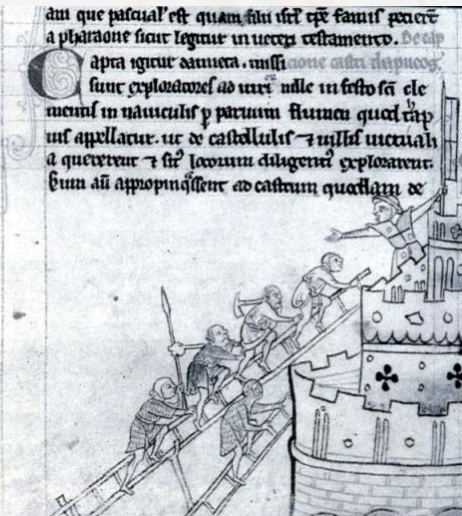 am que pascual' est quam filii isrl' tpe famis petierūt
a pharaone sicut legitur in veteri testamento. De cap
Capta igitur damieta. missi cione castri
sunt exploratores ad viri mille in festo sci cle
mentis in nauiculis p paruum flumen quod tap
nis appellatur. ut de castellulis ⁊ uillis uictuali
a quererent ⁊ sit' locorum diligent' explorarent.
Cum aū appropinqͣssent ad castrum quoddam de